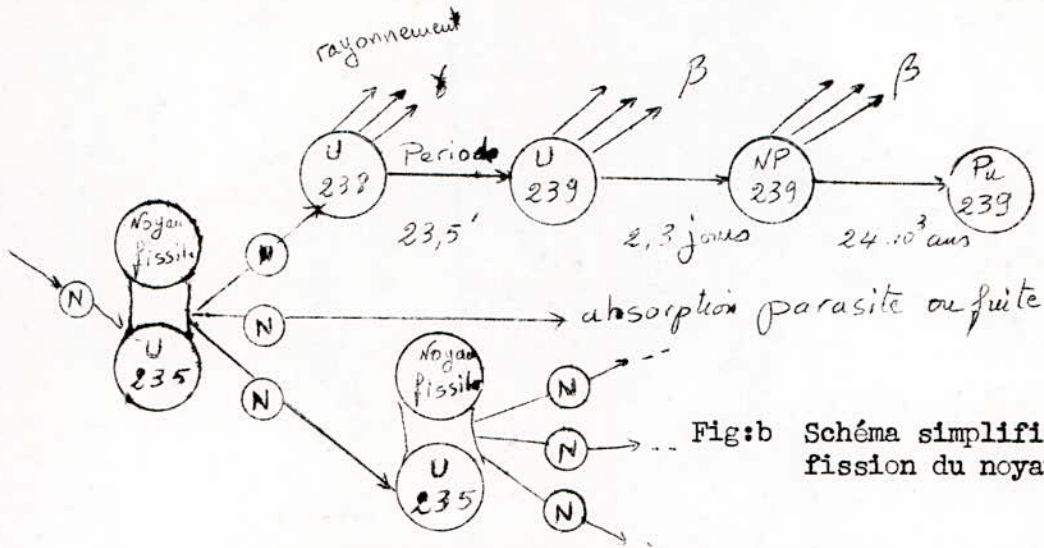 rayonnement
γ
β
β
U
238
Periode
U
239
NP
239
Pu
239
23,5'
2,3 jours
24.10³ ans
Noyau
fissile
N
N
U
235
N
absorption parasite ou fuite
N
Noyau
fissile
U
235
N
N
N
Fig:b Schéma simplifi
fission du noya